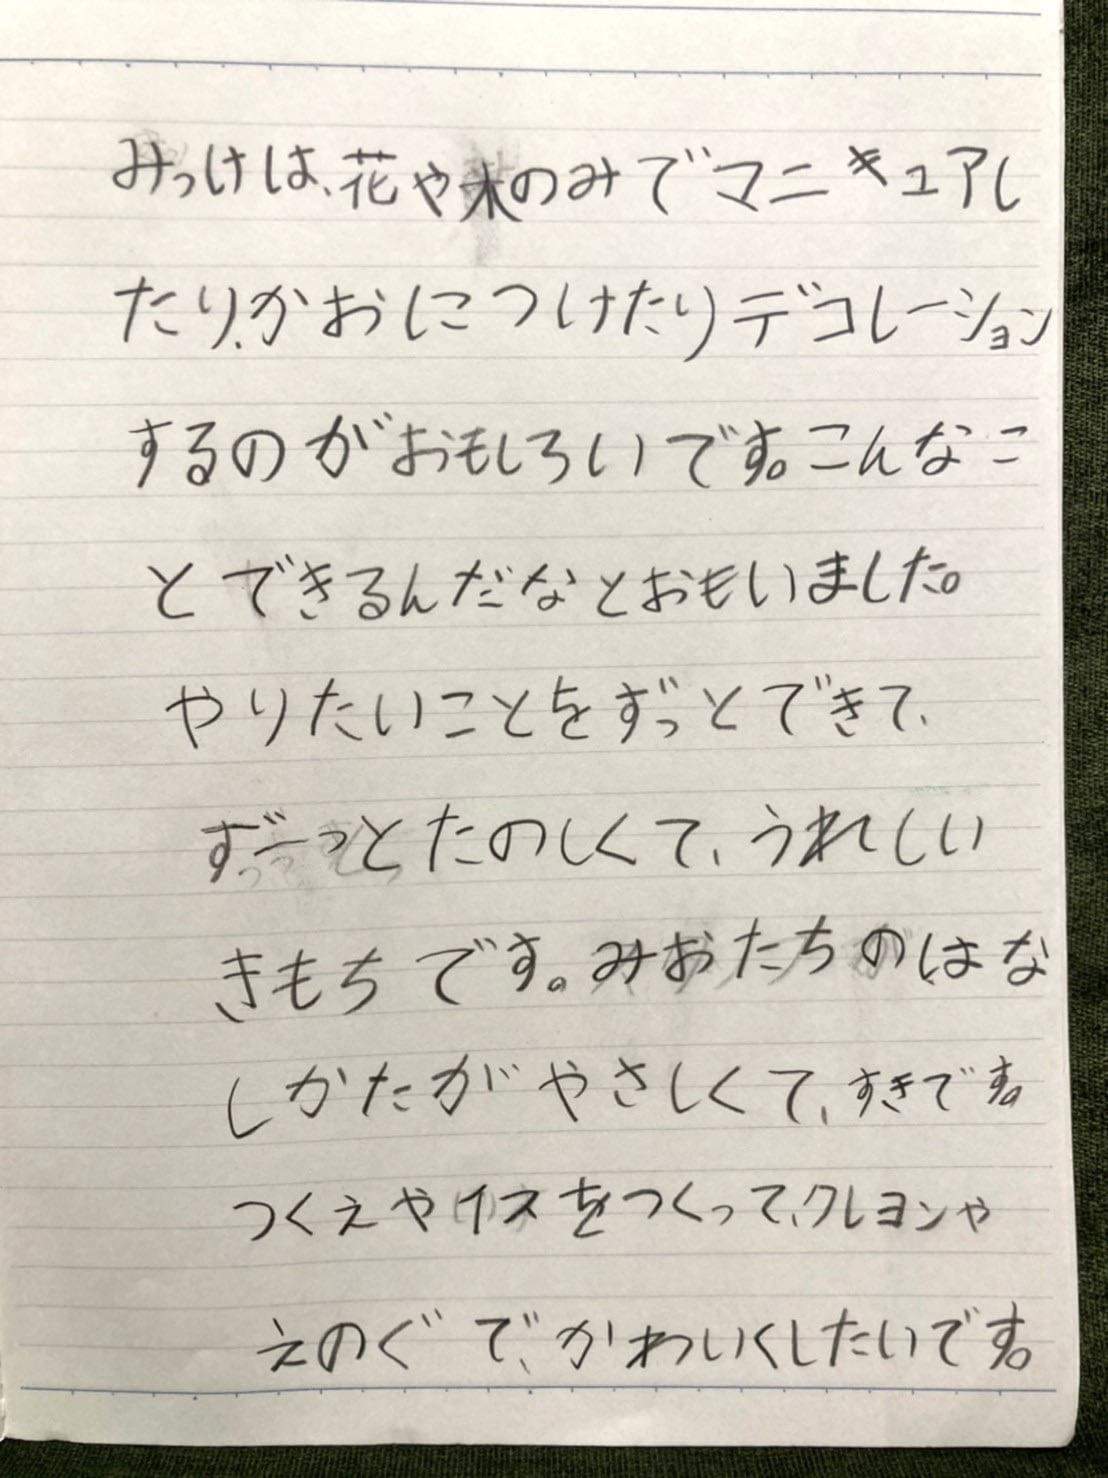 みっけは、花や木のみでマニキュアし
たり、かおにつけたりデコレーション
するのがおもしろいです。こんなこ
とできるんだなとおもいました。
やりたいことをずっとできて、
ずーっとたのしくて、うれしい
きもちです。みおたちのはな
しかたがやさしくて、すきです。
つくえやイスをつくって、クレヨンや
えのぐで、かわいくしたいです。